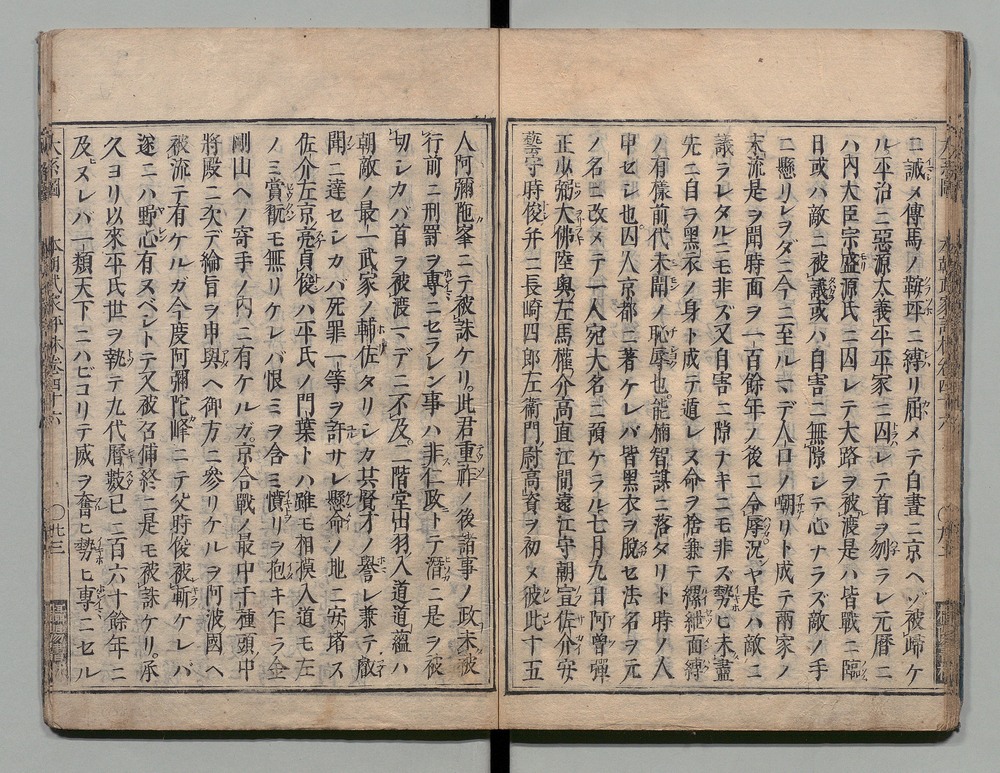 ニ誡メ傳馬ノ鞍坪ニ縛リ屈メテ白晝ニ京ヘゾ被歸ケ
ル平治ニ惡源太義平平家ニ囚レテ首ヲ刎ラレ元暦ニ
ハ内大臣宗盛源氏ニ囚レテ大路ヲ被渡是ハ皆戰ニ臨
日或ハ敵ニ被議或ハ自害ニ無隙シテ心ナラズ敵ノ手
ニ懸リシヲダニ今ニ至ルマデ人口ノ嘲リト成テ兩家ノ
末流是ヲ聞時面ヲ一百餘年ノ後ニ令辱況ヤ是ハ敵ニ
議ラレタルニモ非ズ又自害ニ隙ナキニモ非ズ勢ヒ未盡
先ニ自ラ黑衣ノ身ト成テ遁レヌ命ヲ捨兼テ縲紲面縛
ノ有樣前代未聞ノ恥辱也能楠智謀ニ落タリト時ノ人
申セシ也囚人京都ニ著ケレバ皆黑衣ヲ脫セ法名ヲ元
ノ名ニ改メテ一人宛大名ニ預ケラル七月九日阿曾彈
正少弼大佛陸奧左馬權介高直江間遠江守朝宣佐介安
藝守時俊并ニ長崎四郎左衞門尉高資ヲ初メ彼此十五
人阿彌陁峯ニテ被誅ケリ此君重祚ノ後諸事ノ政未被
行前ニ刑罸ヲ專ニセラレン事ハ非仁政トテ潛ニ是ヲ被
切シカバ首ヲ被渡マデニ不及二階堂出羽入道道蘊ハ
朝敵ノ最一武家ノ輔佐タリシカ共賢才ノ譽レ兼テ叡
聞ニ達セシカバ死罪一等ヲ許サレ懸命ノ地ニ安堵ス
佐介左京亮貞俊ハ平氏ノ門葉トハ雖モ相模入道モ左
ノミ賞翫モ無リケレバ恨ミヲ含ミ憤リヲ抱キ乍ラ金
剛山ヘノ寄手ノ内ニ有ケルガ京合戰ノ最中千種頭中
將殿ニ次デ綸旨ヲ申與ヘ御方ニ參リケルヲ阿波國ヘ
被流テ有ケルガ今度阿彌陀峰ニテ父時俊被斬ケレバ
遂ニハ野心有ヌベシトテ又被召捕終ニ是モ被誅ケリ承
久ヨリ以來平氏世ヲ執テ九代暦數已ニ百六十餘年ニ
及ヌレバ一類天下ニハビコリテ威ヲ奮ヒ勢ヒ專ニセル
大系圖 本朝武家評林卷四十六 〇廿三